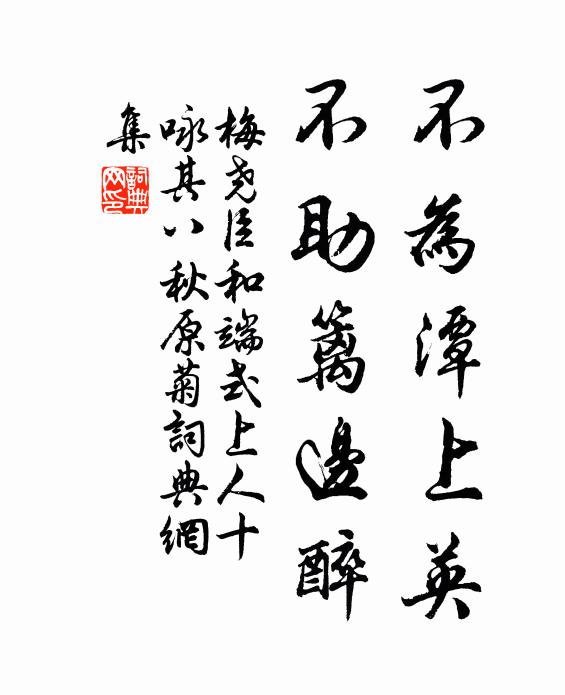 不為潭上英
不助籬邊醉
梅堯臣和端式上人十
咏其八秋原菊詞典網
集
詞典网印